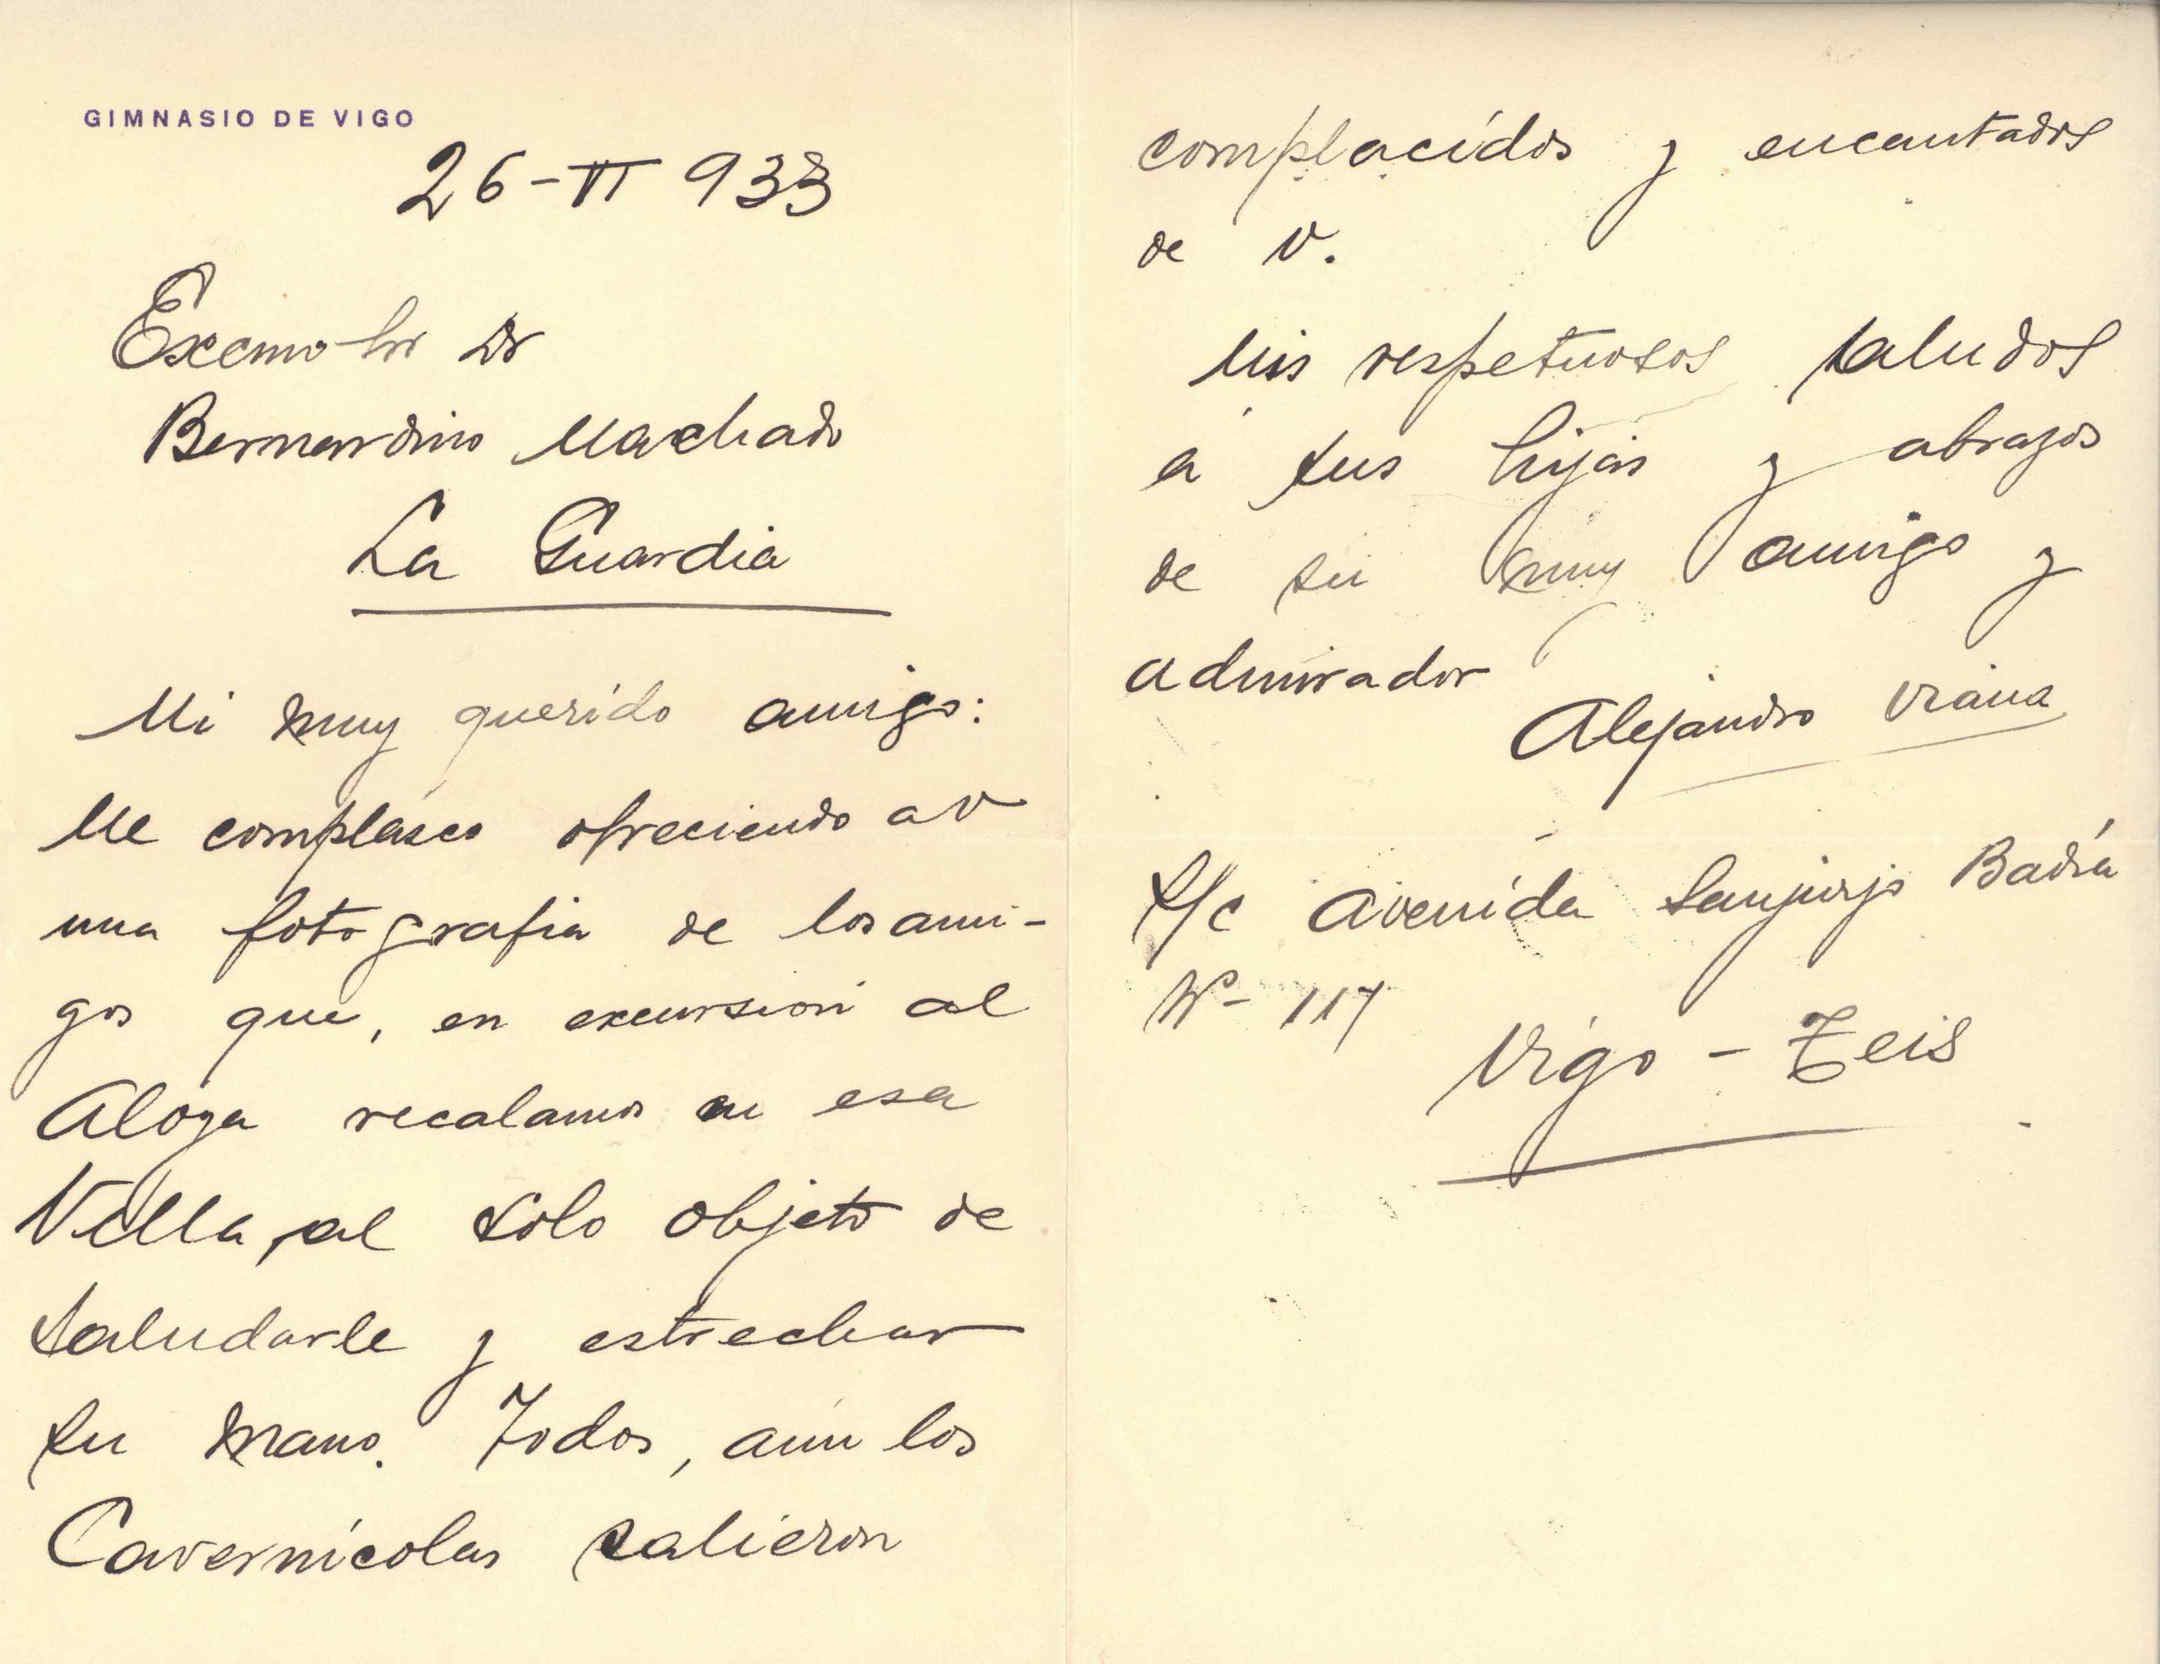 GIMNASIO DE VIGO
26-VI 933
Excmo Sr Dr
Bernardino Machado
La Guardia
Mi muy querido amigo:
Me complasco ofreciendo a V
una fotografia de los ami-
gos que, en excursion al
Aloya recalamos en esa
Villa, al solo objeto de
saludarle y estrechar
su mano. Todos, aún los
Cavernícolas salieron
complacidos y encantados
de V.
Mis respetuosos saludos
a sus hijas y abrazos
de su muy amigo y
admirador
Alejandro Viana
S/c Avenida Sanjurjo Badía
Nº- 117
Vigo - Teis